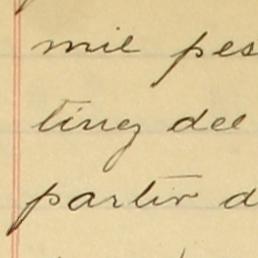 mil pes
tinez del
partir d